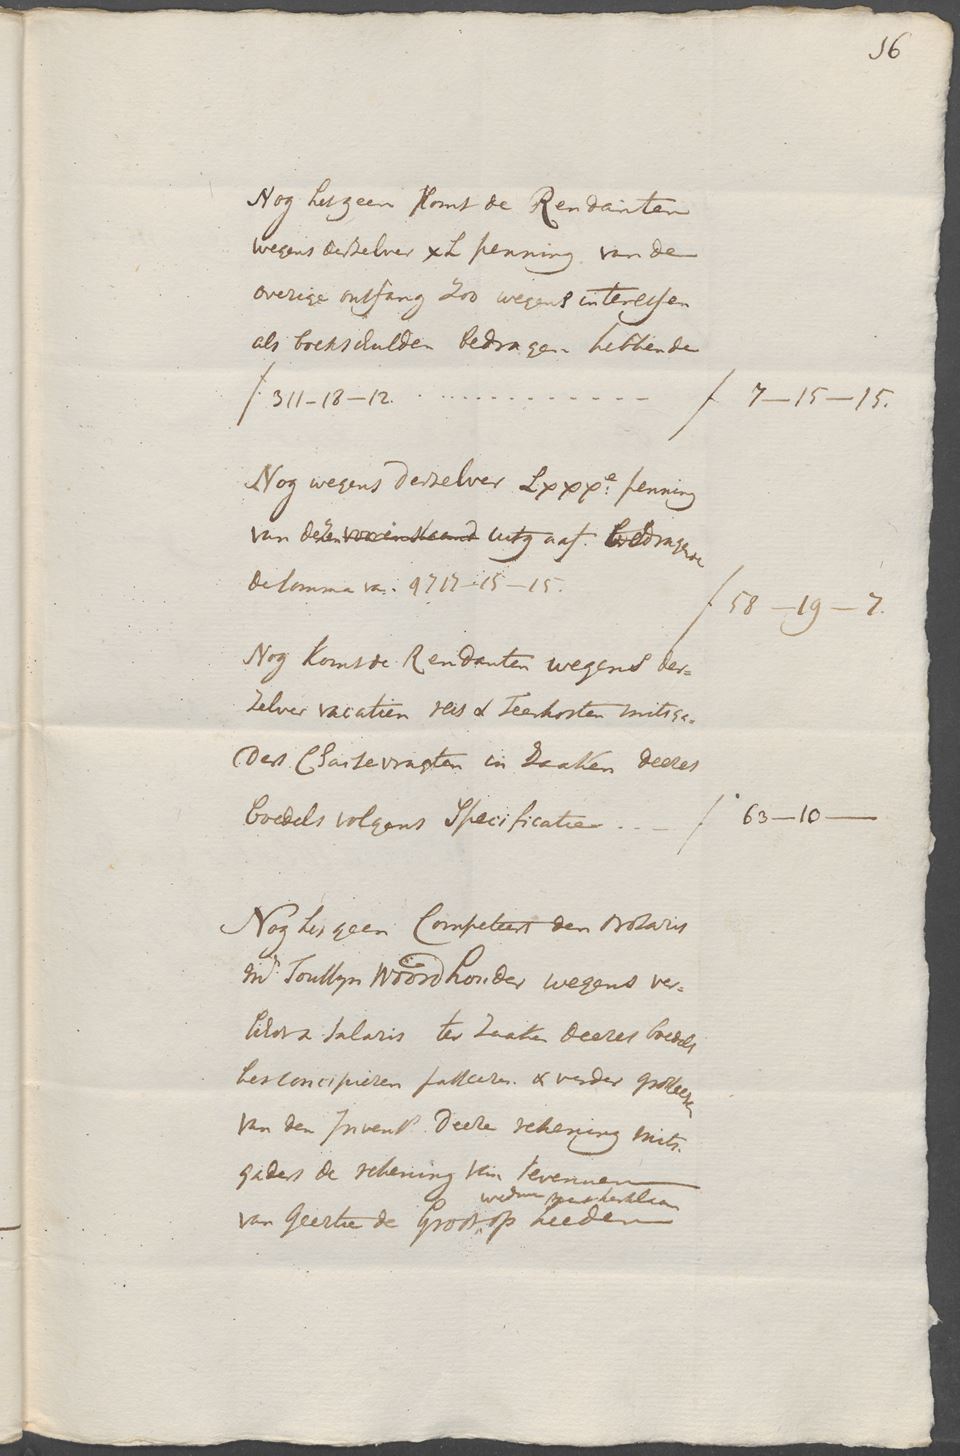 16
Nog hetgeen komt de Rendanten
wegens derzelver xL penning van de
overige ontfang zoo wegens interessen
als boekschulden bedragen hebbende
ƒ 311-18-12. ƒ 7-15-15.
Nog wegens derzelver Lxxxe penning
van dezen voorenstaand uitgaaf bedragende
de somma van 9717-15-15. ƒ 58-19-7.
Nog komt de Rendanten wegens der-
zelver vacatien reis & Teerkosten mitsga-
ders Chaisevragten in zaaken deezes
boedels volgens Specificatie ƒ 63-10-
Nog het geen Competeert den notaris
Woordhouder wegens ver-
salaris ter zaaken deezes boedels
het concipieren & verder
van den Invents. deeze rekening mits-
gaders de rekening van
weduwe
van Geertie de Groot op heeden